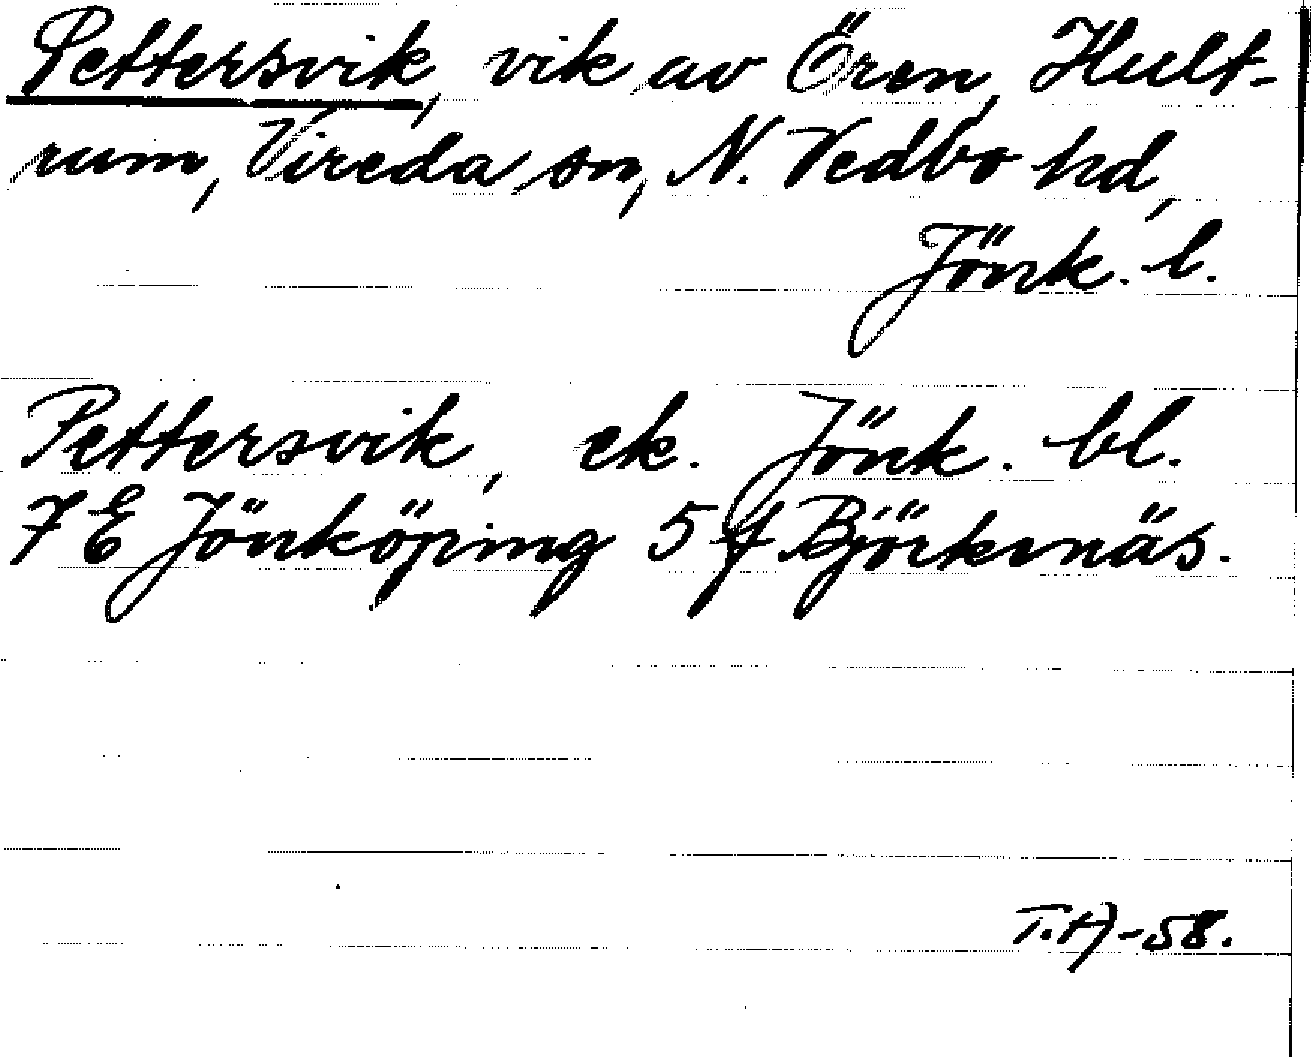 Pettersvik, vik av Ören, Hult-
rum, Vireda sn, N. Vedbo hd,
Jönk. l.
Pettersvik, ek. Jönk. bl.
7 E Jönköping 5 f Björkenäs.
T.A-58.